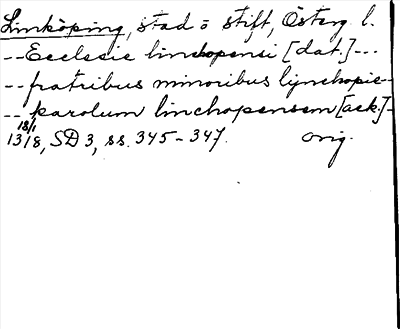 Linköping, stad o stift, Österg. l.
-- Ecclesie lincopensi [dat.] ---
-- fratribus minoribus lynchopie -
-- karolum linchopensem [ack.] -
18/1
1318, SD 3, ss. 345-347. orig.